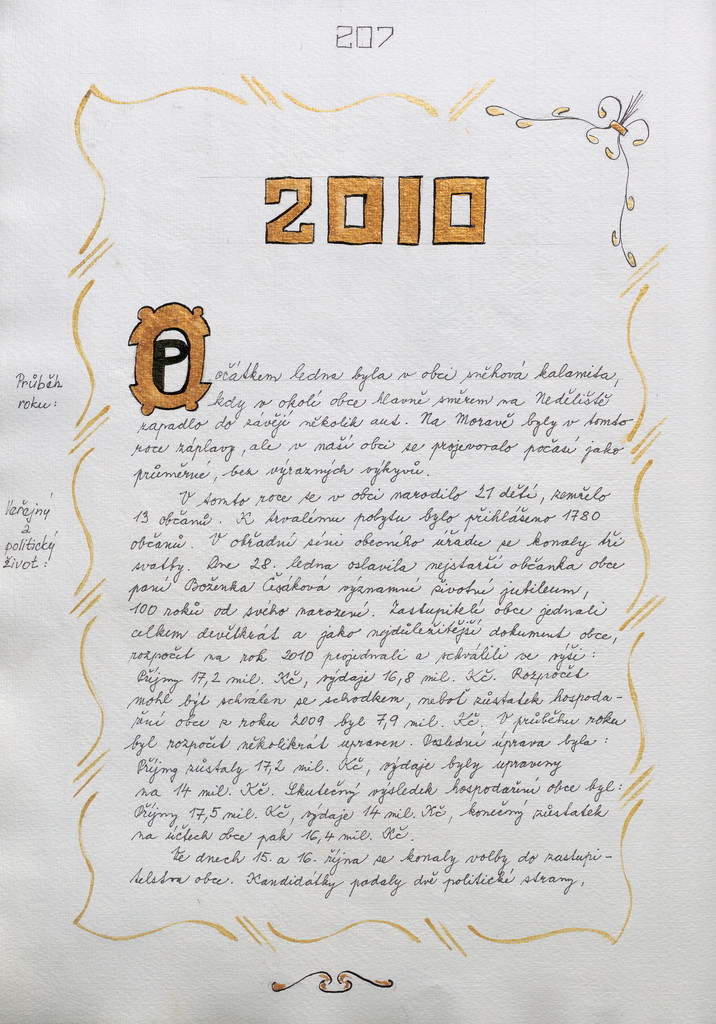 207
2010
Průběh
roku:
Počátkem ledna byla v obci sněhová kalamita,
kdy v okolí obce hlavně směrem na Neděliště
zapadlo do závějí několik aut. Na Moravě byly v tomto
roce záplavy, ale v naší obci se projevovalo počasí jako
průměrné, bez výrazných výkyvů.
Veřejný
a
politický
život:
V tomto roce se v obci narodilo 21 dětí, zemřelo
13 občanů. K trvalému pobytu bylo přihlášeno 1780
občanů. V obřadní síni obecního úřadu se konaly tři
svatby. Dne 28. ledna oslavila nejstarší občanka obce
paní Boženka Čišáková významné životní jubileum,
100 roků od svého narození. Zastupitelé obce jednali
celkem devětkrát a jako nejdůležitější dokument obce,
rozpočet na rok 2010 projednali a schválili ve výši:
Příjmy 17,2 mil. Kč, výdaje 16,8 mil. Kč. Rozpočet
mohl být schválen se schodkem, neboť zůstatek hospoda-
ření obce z roku 2009 byl 7,9 mil. Kč. V průběhu roku
byl rozpočet několikrát upraven. Poslední úprava byla:
Příjmy zůstaly 17,2 mil. Kč, výdaje byly upraveny
na 14 mil. Kč. Skutečný výsledek hospodaření obce byl:
Příjmy 17,5 mil. Kč, výdaje 14 mil. Kč, konečný zůstatek
na účtech obce pak 16,4 mil. Kč.
Ve dnech 15. a 16. října se konaly volby do zastupi-
telstva obce. Kandidátky podaly dvě politické strany,